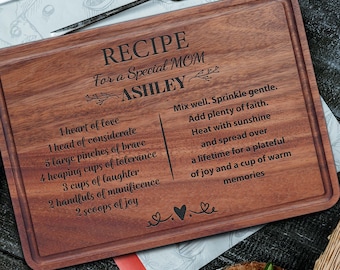 RECIPE
For a Special MOM
ASHLEY
1 heart of love
1 head of considerate
5 large pinches of brave
4 heaping cups of tolerance
3 cups of laughter
2 handfuls of munificence
2 scoops of joy
Mix well. Sprinkle gentle.
Add plenty of faith.
Heat with sunshine
and spread over
a lifetime for a plateful
of joy and a cup of warm
memories